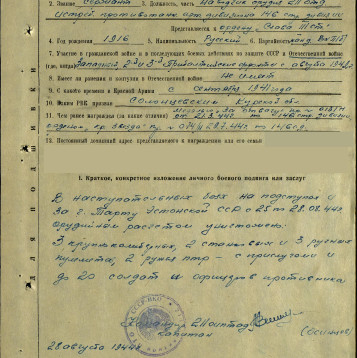 2. Звание Сержант 3. Должность, часть Наводчик орудия 211 отд.
истреб. противотанк. арт. дивизиона 146 стр. дивизии
Представляется к ордену Слава III ст.
4. Год рождения 1916 5. Национальность Русский 6. Партийность канд. ВКП(б)
7. Участие в гражданской войне и в последующих боевых действиях по защите СССР и в Отечественной войне
(где, когда) Западный, 2й и 3й Прибалтийские фронты с августа 194
8. Имеет ли ранения и контузии в Отечественной войне Не имеет
9. С какого времени в Красной Армии с сентября 1941 года
10. Каким РВК призван Солнцевским Курской обл.
11. Чем ранее награжден (за какие отличия)
13. Постоянный домашний адрес представляемого к награждению или его семьи
подполковник
I. Краткое, конкретное изложение личного боевого подвига или заслуг
В наступательных боях на подступах и
за г. Тарту Эстонской ССР с 25 по 28.08.44г.
орудийным расчетом уничтожено:
3 крупнокалиберных, 2 становых и 3 ручных
пулемета, 2 ружья птр - с прислугами и
до 20 солдат и офицеров противника
Командир 211 оиптад
капитан
28 августа 1944г.